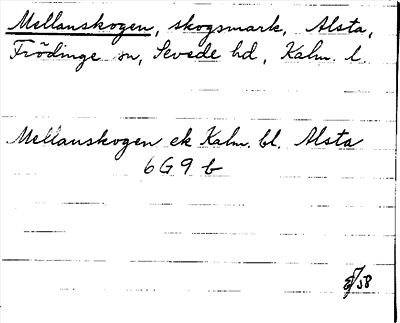 Mellanskogen, skogsmark, Alsta,
Frödinge sn, Sevede hd, Kalm. l.
Mellanskogen ek Kalm. bl. Alsta
6G9b